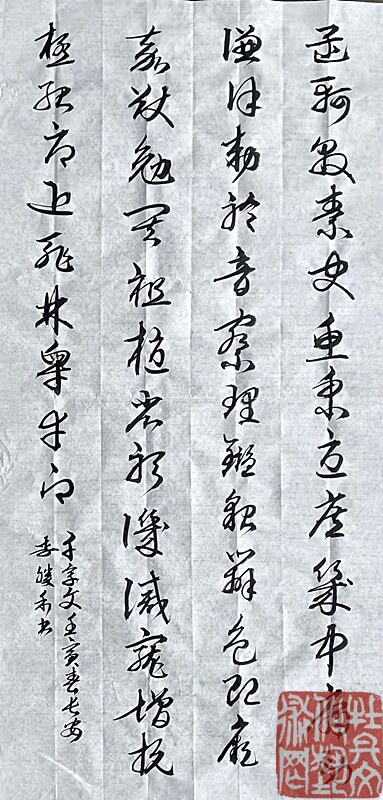 孟軻敦素史魚秉直庶幾中庸勞
謙謹勅聆音察理鑑貌辨色貽厥
嘉猷勉其祗植省躬譏誡寵增抗
極殆辱近恥林皋幸即
千字文壬寅春长安